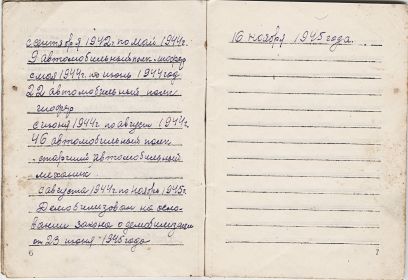 с сентября 1942г. по май 1944г.
9 автомобильный полк. шофер
с мая 1944г. по июнь 1944 год
22 автомобильный полк
шофер
с июня 1944г. по август 1944г.
46 автомобильный полк
старший автомобильный
механик
с августа 1944г. по ноябрь 1945г.
Демобилизован на осно-
вании закона о демобилизации
от 23 июня 1945 года
6
16 ноября 1945 года.
7